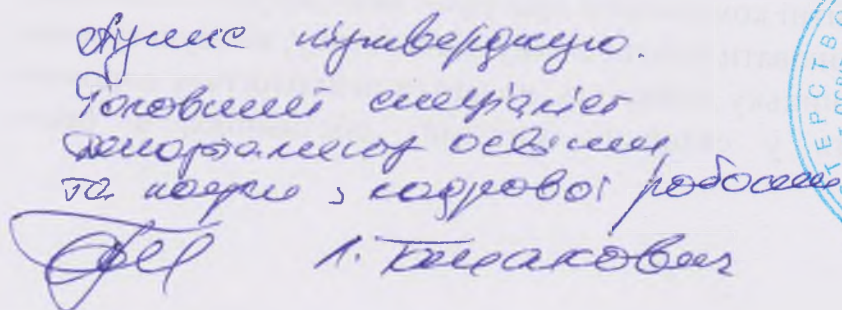 Підпис підтверджую.
Головний спеціаліст
департаменту освіти
та науки з кадрової роботи